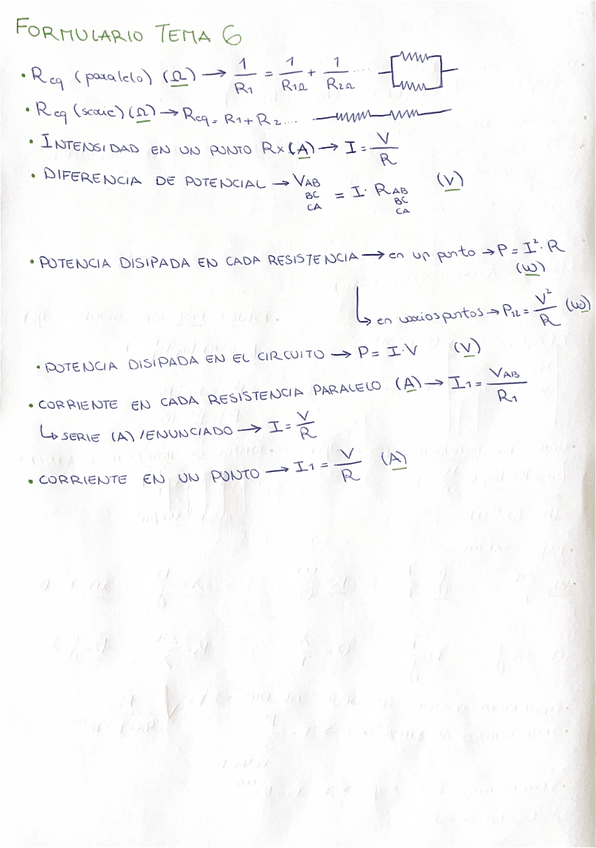 FORMULARIO TEMA 6
• Req (paralelo) (Ω) → 1/R1 = 1/R1Ω + 1/R2Ω ...
• Req (serie) (Ω) → Req = R1 + R2 ...
• INTENSIDAD EN UN PUNTO Rx (A) → I = V/R
• DIFERENCIA DE POTENCIAL → VAB BC CA = I · RAB BC CA (V)
• POTENCIA DISIPADA EN CADA RESISTENCIA → en un punto → P = I² · R (W)
↳ en varios puntos → P12 = V²/R (W)
• POTENCIA DISIPADA EN EL CIRCUITO → P = I · V (V)
• CORRIENTE EN CADA RESISTENCIA PARALELO (A) → I1 = VAB/R1
↳ SERIE (A) / ENUNCIADO → I = V/R
• CORRIENTE EN UN PUNTO → I1 = V/R (A)